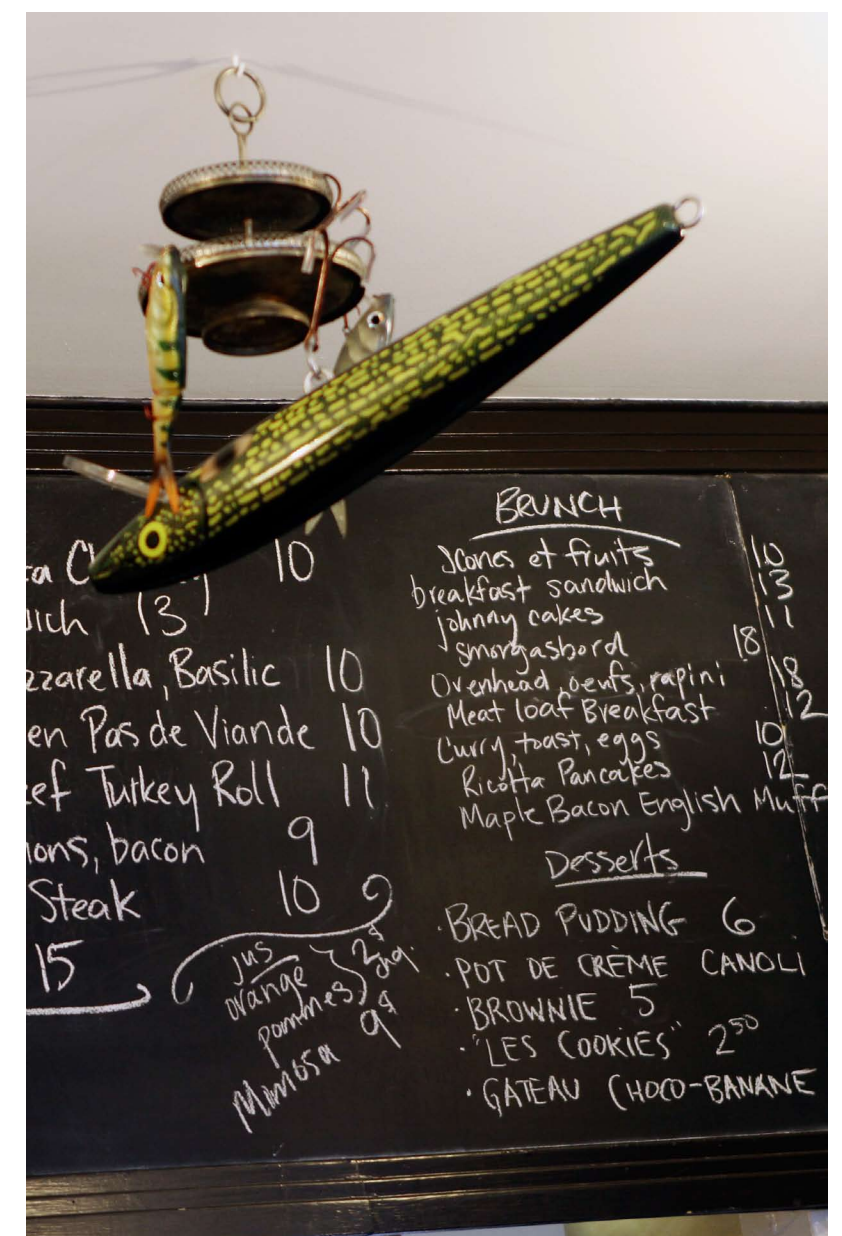 10
13
zzarella, Basilic 10
en Pas de Viande 10
ef Turkey Roll 11
ons, bacon 9
Steak 10
15
jus
orange
pommes
2$
Mimosa 9$
BRUNCH
Scones et fruits 10
breakfast sandwich 13
johnny cakes 11
smorgasbord 18
Ovenhead, oeufs, rapini 18
Meat loaf Breakfast 12
Curry, toast, eggs 10
Ricotta Pancakes 12
Maple Bacon English Muff
Desserts
·BREAD PUDDING 6
·POT DE CRÈME CANOLI
·BROWNIE 5
·"LES COOKIES" 2 50
·GATEAU CHOCO-BANANE